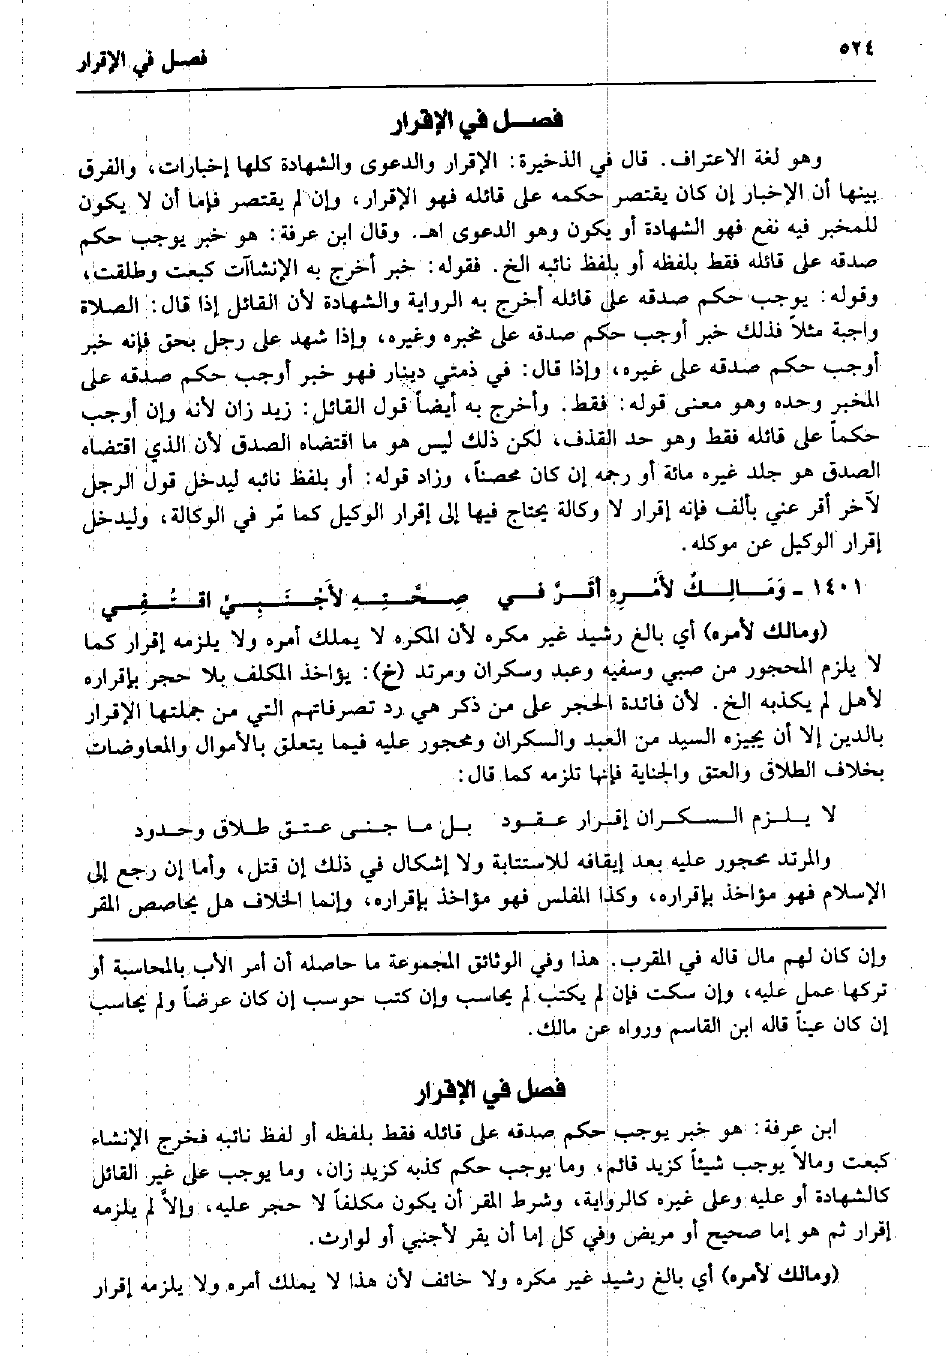 ٥٢٤
فصل في الإقرار
فصــل في الإقرار
وهو لغة الاعتراف. قال في الذخيرة: الإقرار والدعوى والشهادة كلها إخبارات، والفرق
بينها أن الإخبار إن كان يقتصر حكمه على قائله فهو الإقرار، وإن لم يقتصر فإما أن لا يكون
للمخبر فيه نفع فهو الشهادة أو يكون وهو الدعوى اهـ. وقال ابن عرفة: هو خبر يوجب حكم
صدقه على قائله فقط بلفظه أو بلفظ نائبه الخ. فقوله: خبر أخرج به الإنشاآت كبعت وطلقت،
وقوله: يوجب حكم صدقه على قائله أخرج به الرواية والشهادة لأن القائل إذا قال: الصلاة
واجبة مثلاً فذلك خبر أوجب حكم صدقه على مخبره وغيره، وإذا شهد على رجل بحق فإنه خبر
أوجب حكم صدقه على غيره، وإذا قال: في ذمتي دينار فهو خبر أوجب حكم صدقه على
المخبر وحده وهو معنى قوله: فقط. وأخرج به أيضاً قول القائل: زيد زان لأنه وإن أوجب
حكماً على قائله فقط وهو حد القذف، لكن ذلك ليس هو ما اقتضاه الصدق لأن الذي اقتضاه
الصدق هو جلد غيره مائة أو رجمه إن كان محصناً، وزاد قوله: أو بلفظ نائبه ليدخل قول الرجل
لآخر أقر عني بألف فإنه إقرار لا وكالة يحتاج فيها إلى إقرار الوكيل كما مّر في الوكالة، وليدخل
إقرار الوكيل عن موكله.
١٤٠١ - وَمَـالِـكٌ لأَمْـرِهِ أقَـرَّ فـي صِـحَّـتِـهِ لأَجْـنَـبِـيٍّ اقـتُـفِـي
(ومالك لأمره) أي بالغ رشيد غير مكره لأن المكره لا يملك أمره ولا يلزمه إقرار كما
لا يلزم المحجور من صبي وسفيه وعبد وسكران ومرتد (خ): يؤاخذ المكلف بلا حجر بإقراره
لأهل لم يكذبه الخ. لأن فائدة الحجر على من ذكر هي رد تصرفاتهم التي من جملتها الإقرار
بالدين إلا أن يجيزه السيد من العبد والسكران ومحجور عليه فيما يتعلق بالأموال والمعاوضات
بخلاف الطلاق والعتق والجناية فإنها تلزمه كما قال:
لا يـلـزم السـكـران إقـرار عـقـود بـل مـا جـنـى عـتـق طـلاق وحـدود
والمرتد محجور عليه بعد إيقافه للاستتابة ولا إشكال في ذلك إن قتل، وأما إن رجع إلى
الإسلام فهو مؤاخذ بإقراره، وكذا المفلس فهو مؤاخذ بإقراره، وإنما الخلاف هل يحاصص المقر
وإن كان لهم مال قاله في المقرب. هذا وفي الوثائق المجموعة ما حاصله أن أمر الأب بالمحاسبة أو
تركها عمل عليه، وإن سكت فإن لم يكتب لم يحاسب وإن كتب حوسب إن كان عرضاً ولم يحاسب
إن كان عيناً قاله ابن القاسم ورواه عن مالك.
فصل في الإقرار
ابن عرفة: هو خبر يوجب حكم صدقه على قائله فقط بلفظه أو لفظ نائبه فخرج الإنشاء
كبعت ومالاً يوجب شيئاً كزيد قائم، وما يوجب حكم كذبه كزيد زان، وما يوجب على غير القائل
كالشهادة أو عليه وعلى غيره كالرواية، وشرط المقر أن يكون مكلفاً لا حجر عليه، وإلاَّ لم يلزمه
إقرار ثم هو إما صحيح أو مريض وفي كل إما أن يقر لأجنبي أو لوارث.
(ومالك لأمره) أي بالغ رشيد غير مكره ولا خائف لأن هذا لا يملك أمره ولا يلزمه إقرار